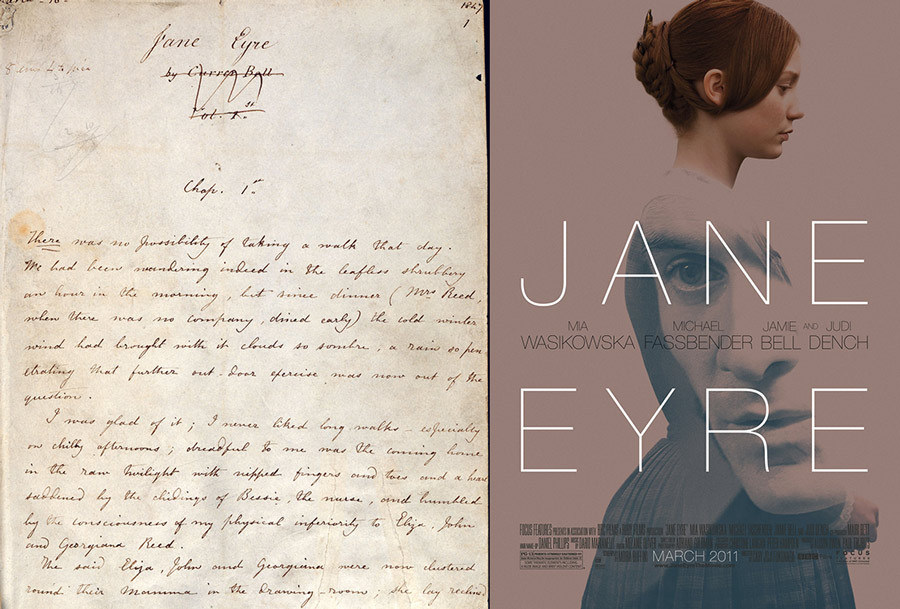 1847
1
Jane Eyre
by Currer Bell
Vol. 1.st
Chap. 1.st
There was no possibility of taking a walk that day.
We had been wandering indeed in the leafless shrubbery
an hour in the morning, but since dinner (Mrs Reed,
when there was no company, dined early) the cold winter
wind had brought with it clouds so sombre, a rain so pen-
etrating that further out-door exercise was now out of the
question.
I was glad of it; I never liked long walks – especially
on chilly afternoons; dreadful to me was the coming home
in the raw twilight with nipped fingers and toes and a heart
saddened by the chidings of Bessie, the nurse, and humbled
by the consciousness of my physical inferiority to Eliza, John
and Georgiana Reed.
The said Eliza, John and Georgiana were now clustered
round their Mamma in the drawing-room; she lay reclined
JANE
MIA WASIKOWSKA MICHAEL FASSBENDER JAMIE BELL AND JUDI DENCH
EYRE
FOCUS FEATURES
MARCH 2011
PG-13
FOCUS